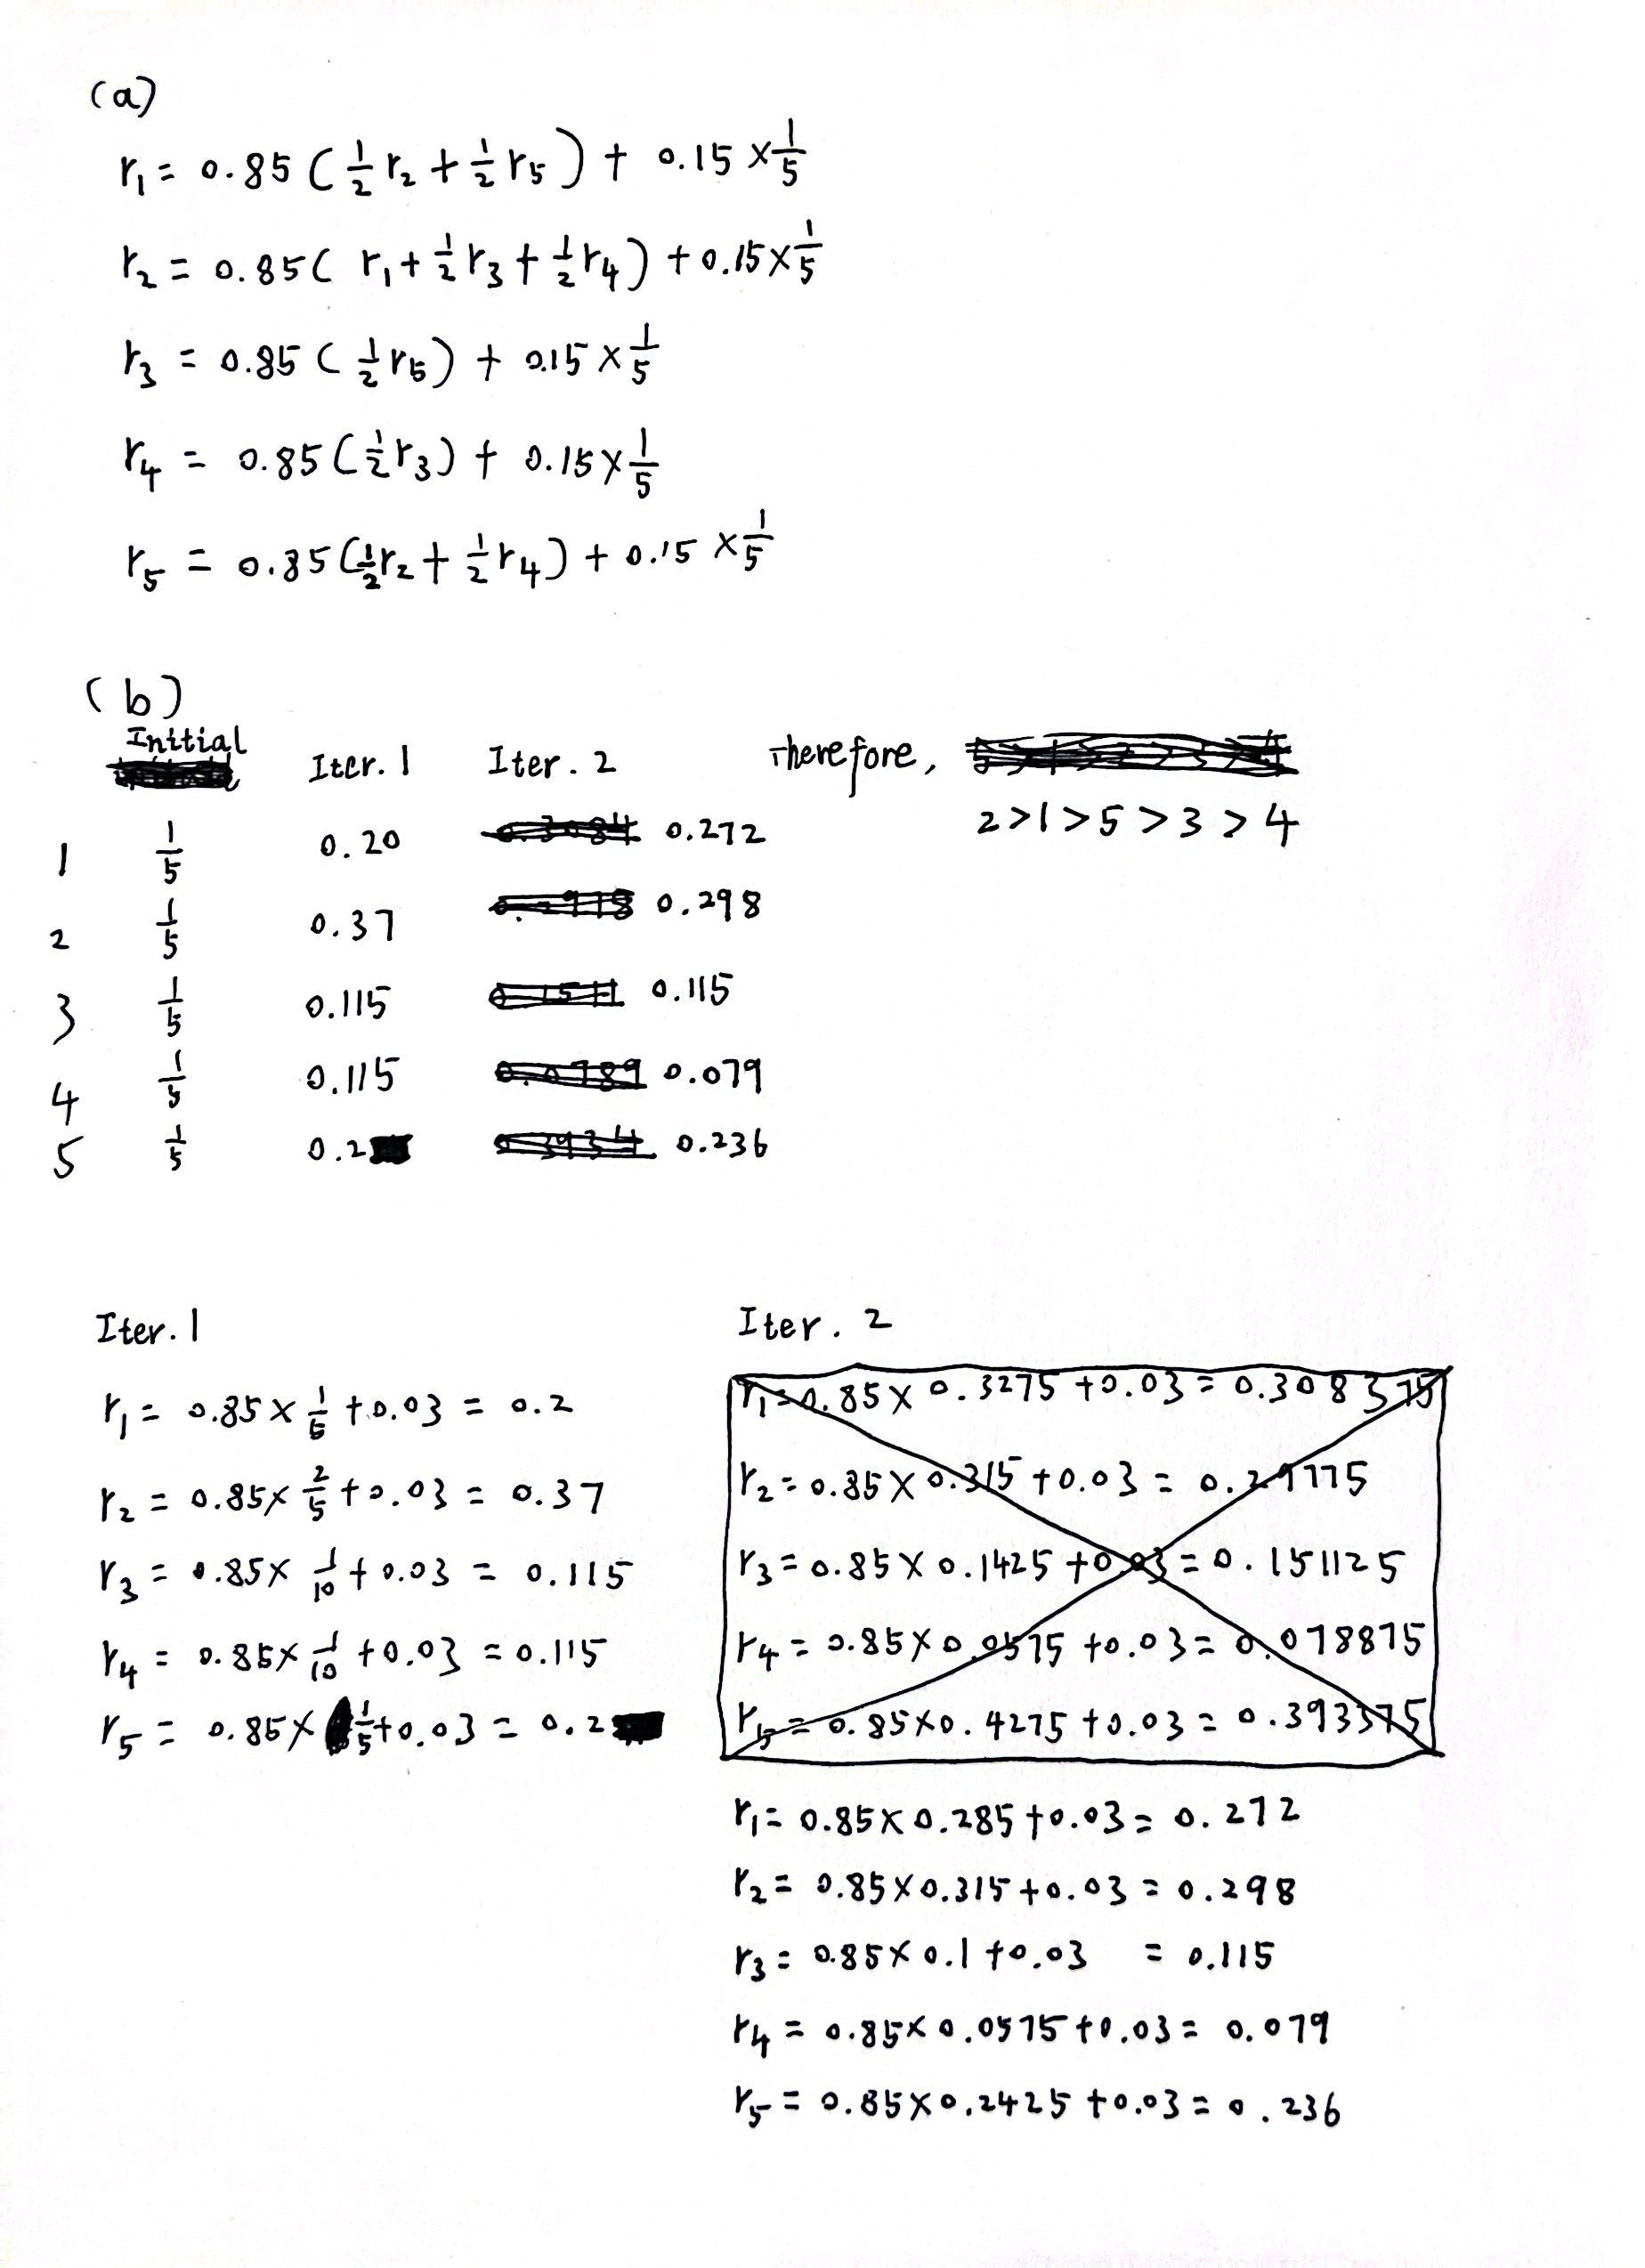 (a)
r₁ = 0.85 ( ½ r₂ + ½ r₅ ) + 0.15 × 1/5
r₂ = 0.85 ( r₁ + ½ r₃ + ½ r₄ ) + 0.15 × 1/5
r₃ = 0.85 ( ½ r₅ ) + 0.15 × 1/5
r₄ = 0.85 ( ½ r₃ ) + 0.15 × 1/5
r₅ = 0.85 ( ½ r₂ + ½ r₄ ) + 0.15 × 1/5
(b)
Initial Iter. 1 Iter. 2 Therefore,
2 > 1 > 5 > 3 > 4
1 1/5 0.20 0.272
2 1/5 0.37 0.298
3 1/5 0.115 0.115
4 1/5 0.115 0.079
5 1/5 0.2 0.236
Iter. 1
r₁ = 0.85 × 1/5 + 0.03 = 0.2
r₂ = 0.85 × 2/5 + 0.03 = 0.37
r₃ = 0.85 × 1/10 + 0.03 = 0.115
r₄ = 0.85 × 1/10 + 0.03 = 0.115
r₅ = 0.85 × 1/5 + 0.03 = 0.2
Iter. 2
r₁ = 0.85 × 0.3275 + 0.03 = 0.308375
r₂ = 0.85 × 0.315 + 0.03 = 0.29775
r₃ = 0.85 × 0.1425 + 0.03 = 0.151125
r₄ = 0.85 × 0.0575 + 0.03 = 0.078875
r₅ = 0.85 × 0.4275 + 0.03 = 0.393375
r₁ = 0.85 × 0.285 + 0.03 = 0.272
r₂ = 0.85 × 0.315 + 0.03 = 0.298
r₃ = 0.85 × 0.1 + 0.03 = 0.115
r₄ = 0.85 × 0.0575 + 0.03 = 0.079
r₅ = 0.85 × 0.2425 + 0.03 = 0.236